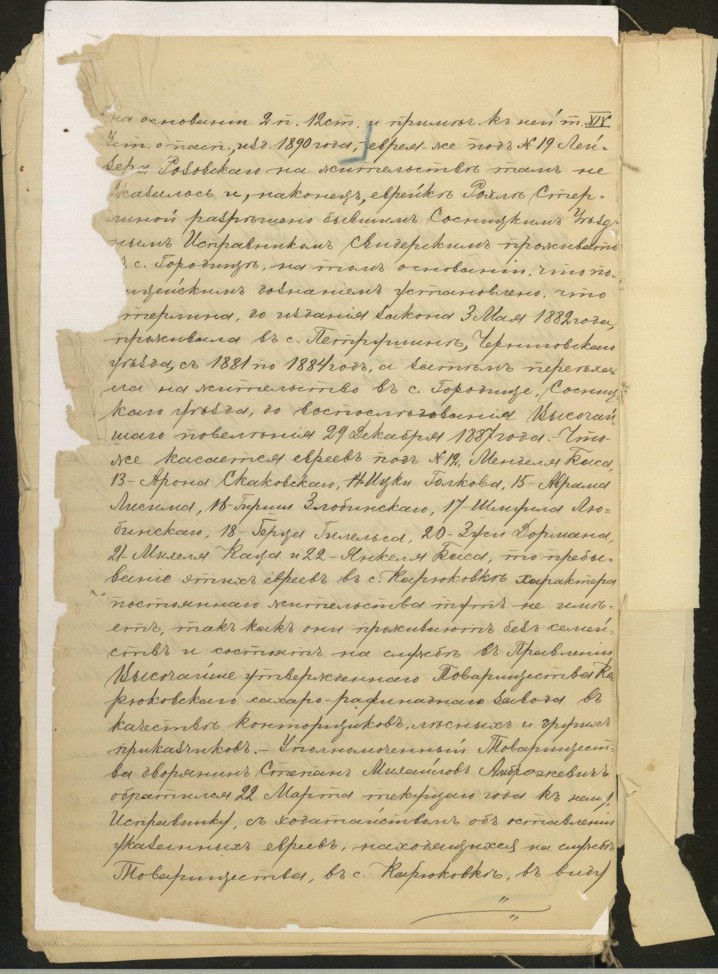 на основаніи 2 п. 12 ст. и примѣч. къ ней т. XIV
Уст. о пасп., изд. 1890 года, еврея же подъ N 19 Лей-
зера Розовскаго на жительствѣ тамъ не
оказалось и, наконецъ, еврейкѣ Рохлѣ Стер-
линой разрѣшено бывшимъ Сосницкимъ Уѣзд-
нымъ Исправникомъ Свидерскимъ проживать
въ с. Городищѣ, на томъ основаніи, что по-
лицейскимъ дознаніемъ установлено, что
Стерлина, до изданія закона 3 Мая 1882 года,
проживала въ с. Петрушинѣ, Черниговскаго
уѣзда, съ 1881 по 1884 годъ, а затѣмъ переѣха-
ла на жительство въ с. Городище, Сосниц-
каго уѣзда, до воспослѣдованія Высочай
шаго повелѣнія 29 Декабря 1887 года. - Что-
же касается евреевъ подъ N 12, Менделя Баса,
13 - Арона Скаковскаго, 14 Ицки Голкова, 15 - Абрама
16 - Гирши Злобинскаго, 17 - Шмуила Лю-
бинскаго, 18 - Герца Гилельса, 20 - Зуси Дормана,
21 - Михеля Каца и 22 - Янкеля Баса, то пребы-
ваніе этихъ евреевъ въ с. Карюковкѣ характера
постояннаго жительства тутъ не имѣ-
етъ, такъ какъ они проживаютъ безъ семей-
ствъ и состоятъ на службѣ въ Правленіи
Высочайше утвержденнаго Товарищества Ка
рюковскаго сахаро-рафинаднаго завода въ
качествѣ конторщиковъ, лѣсныхъ и другихъ
приказчиковъ. - Уполномоченный Товарищест-
ва дворянинъ Степанъ Михайловъ
обратился 22 Марта текущаго года къ нему,
Исправнику, съ ходатайствомъ объ оставленіи
указанныхъ евреевъ, находящихся на службѣ
Товарищества, въ с. Карюковкѣ, въ виду